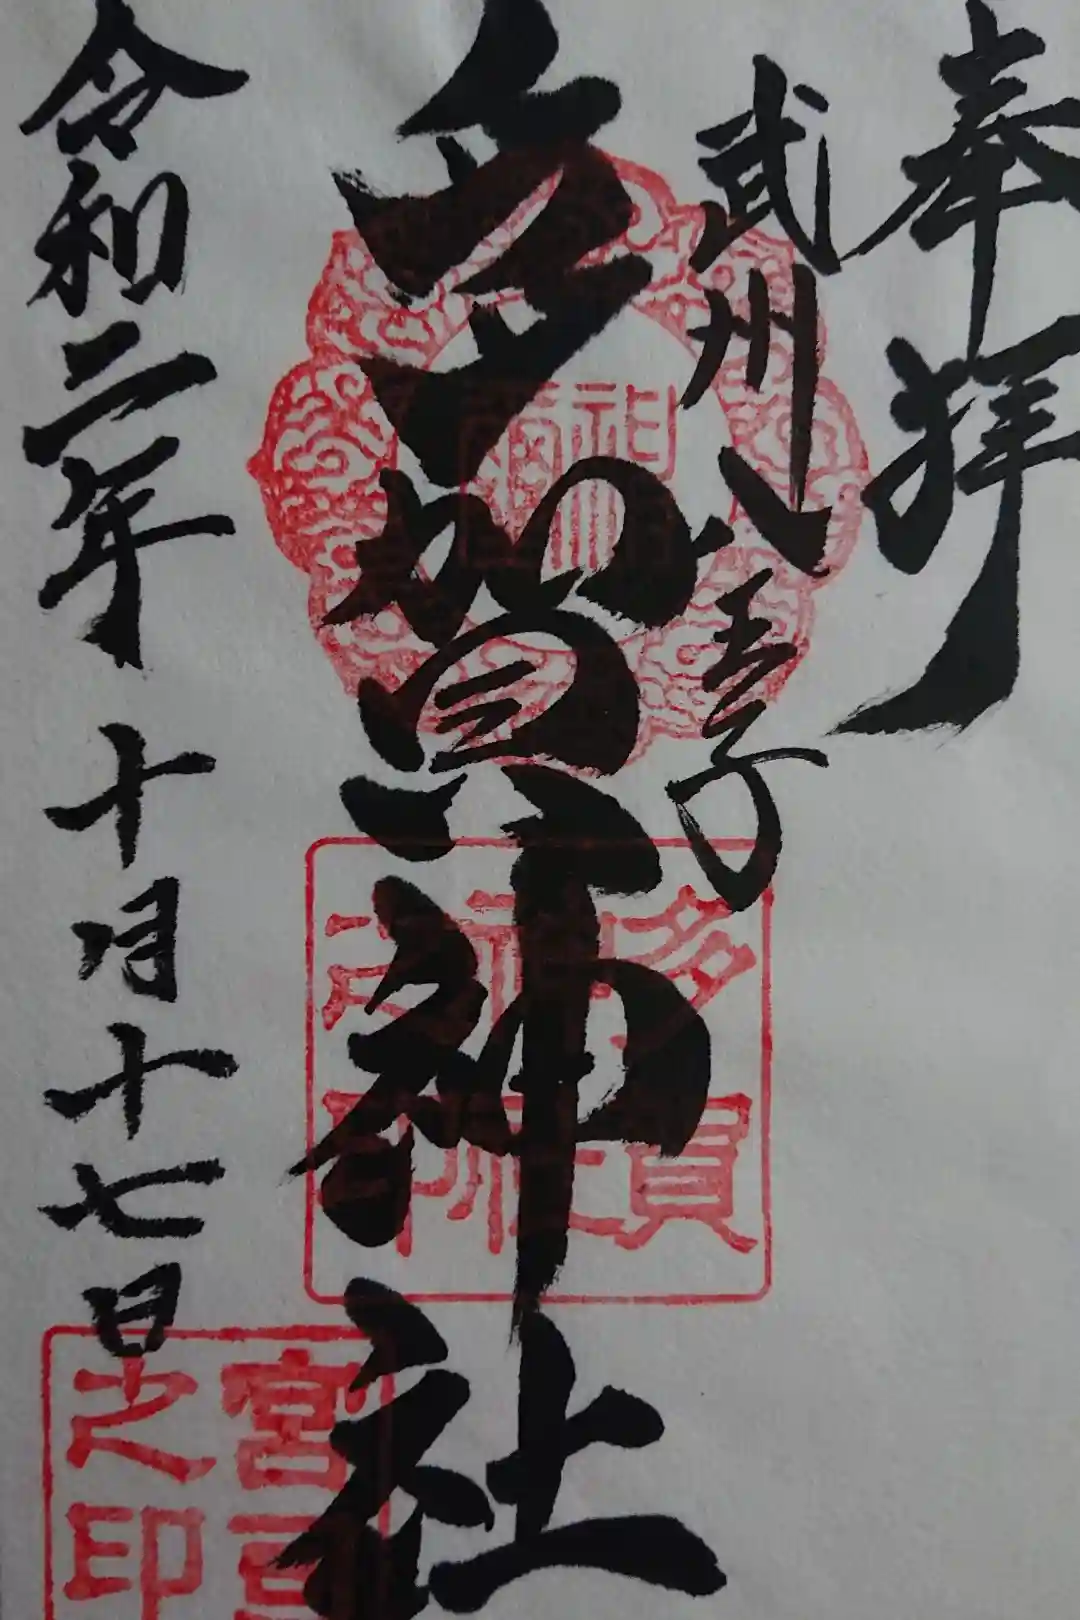 奉拝
武州八王子
多賀神社
令和二年 十月十七日
多賀
神社
之印
宮司
之印